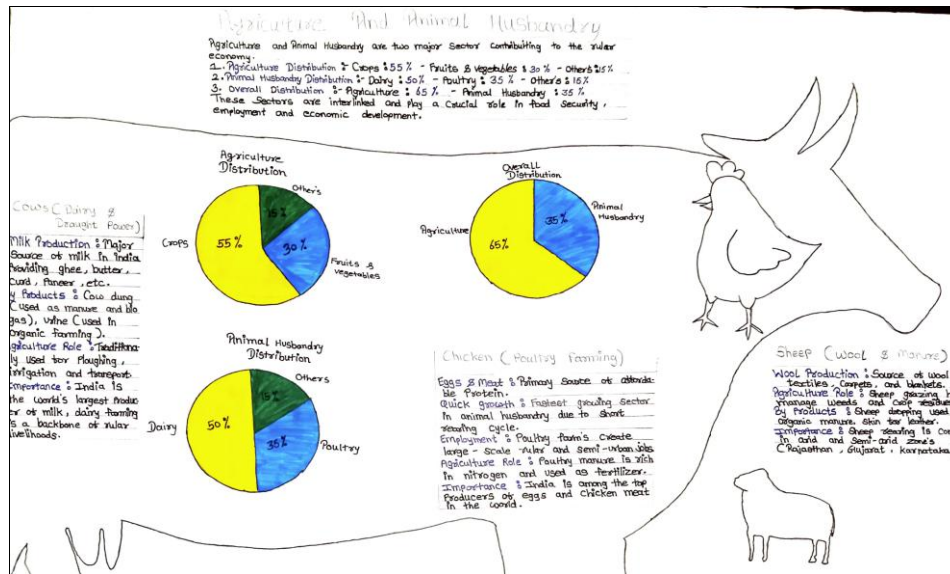 Agriculture And Animal Husbandry
Agriculture and Animal Husbandry are two major sector contributing to the ruler
economy.
1. Agriculture Distribution :- Crops : 55% - Fruits & vegetables : 30% - Others : 15%
2. Animal Husbandry Distribution :- Dairy : 50% - Poultry : 35% - Other's : 15%
3. Overall Distribution :- Agriculture : 65% - Animal Husbandry : 35%
These Sectors are interlinked and play a crucial role in food security,
employment and economic development.
Agriculture
Distribution
Other's
15%
Crops
55%
30%
Fruits &
vegetables
Overall
Distribution
Animal
Husbandry
35%
Agriculture
65%
Cows (Dairy &
Draught Power)
Milk Production : Major
Source of milk in India
Providing ghee, butter,
curd, Paneer, etc.
y Products : Cow dung
(used as manure and bio
gas), urine (used in
organic farming).
Agriculture Role : Traditiona
ly used for Ploughing,
irrigation and transport
Importance : India is
the world's largest Produc
er of milk, dairy farming
is a backbone of rular
livelihoods.
Animal Husbandry
Distribution
Others
15%
Dairy
50%
35%
Poultry
Chicken (Poultry Farming)
Eggs & Meat : Primary Source of afforda
ble Protein.
Quick growth : Fastest growing sector
in animal husbandry due to short
rearing cycle.
Employment : Poultry farm's create
large-scale rular and semi-urban jobs
Agriculture Role : Poultry manure is rich
in nitrogen and used as fertilizer.
Importance : India is among the top
Producers of eggs and chicken meat
in the world.
Sheep (Wool & Manure)
Wool Production : Source of wool
textiles, Carpets, and blankets.
Agriculture Role : Sheep grazing h
manage weeds and crop residues
By Products : Sheep dropping used
organic manure. Skin for leather.
Importance : Sheep rearing is Com
in arid and Semi-arid zone's
(Rajasthan, Gujarat, Karnataka